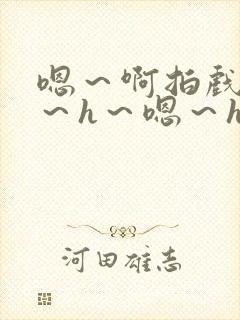 嗯～啊拍戏
～h～嗯～h
河田雄志